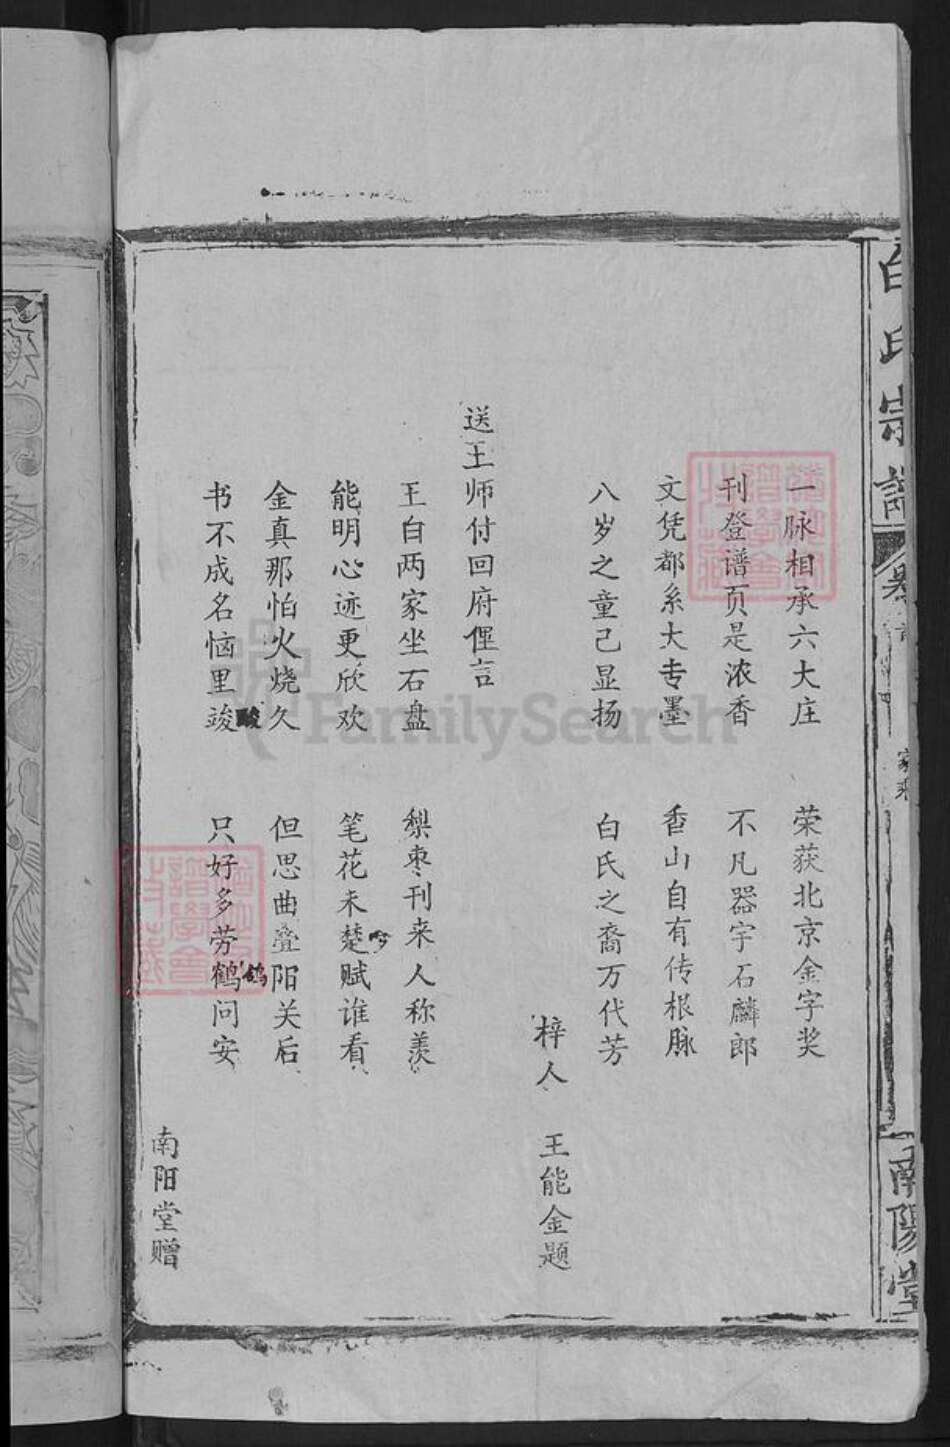 白氏宗譜
南陽堂
一脉相承六大庄 荣获北京金字奖
刊登谱页是浓香 不凡器宇石麟郎
文凭都系大专墨 香山自有传根脉
八岁之童己显扬 白氏之裔万代芳
梓人 王能金题
送王师付回府俚言
王白两家坐石盘 梨枣刊来人称羡
能明心迹更欣欢 笔花未楚赋谁看
金真那怕火烧久 但思曲叠阳关后
书不成名恼里竣 只好多劳鹤问安
酸
鸽
南阳堂赠
FamilySearch